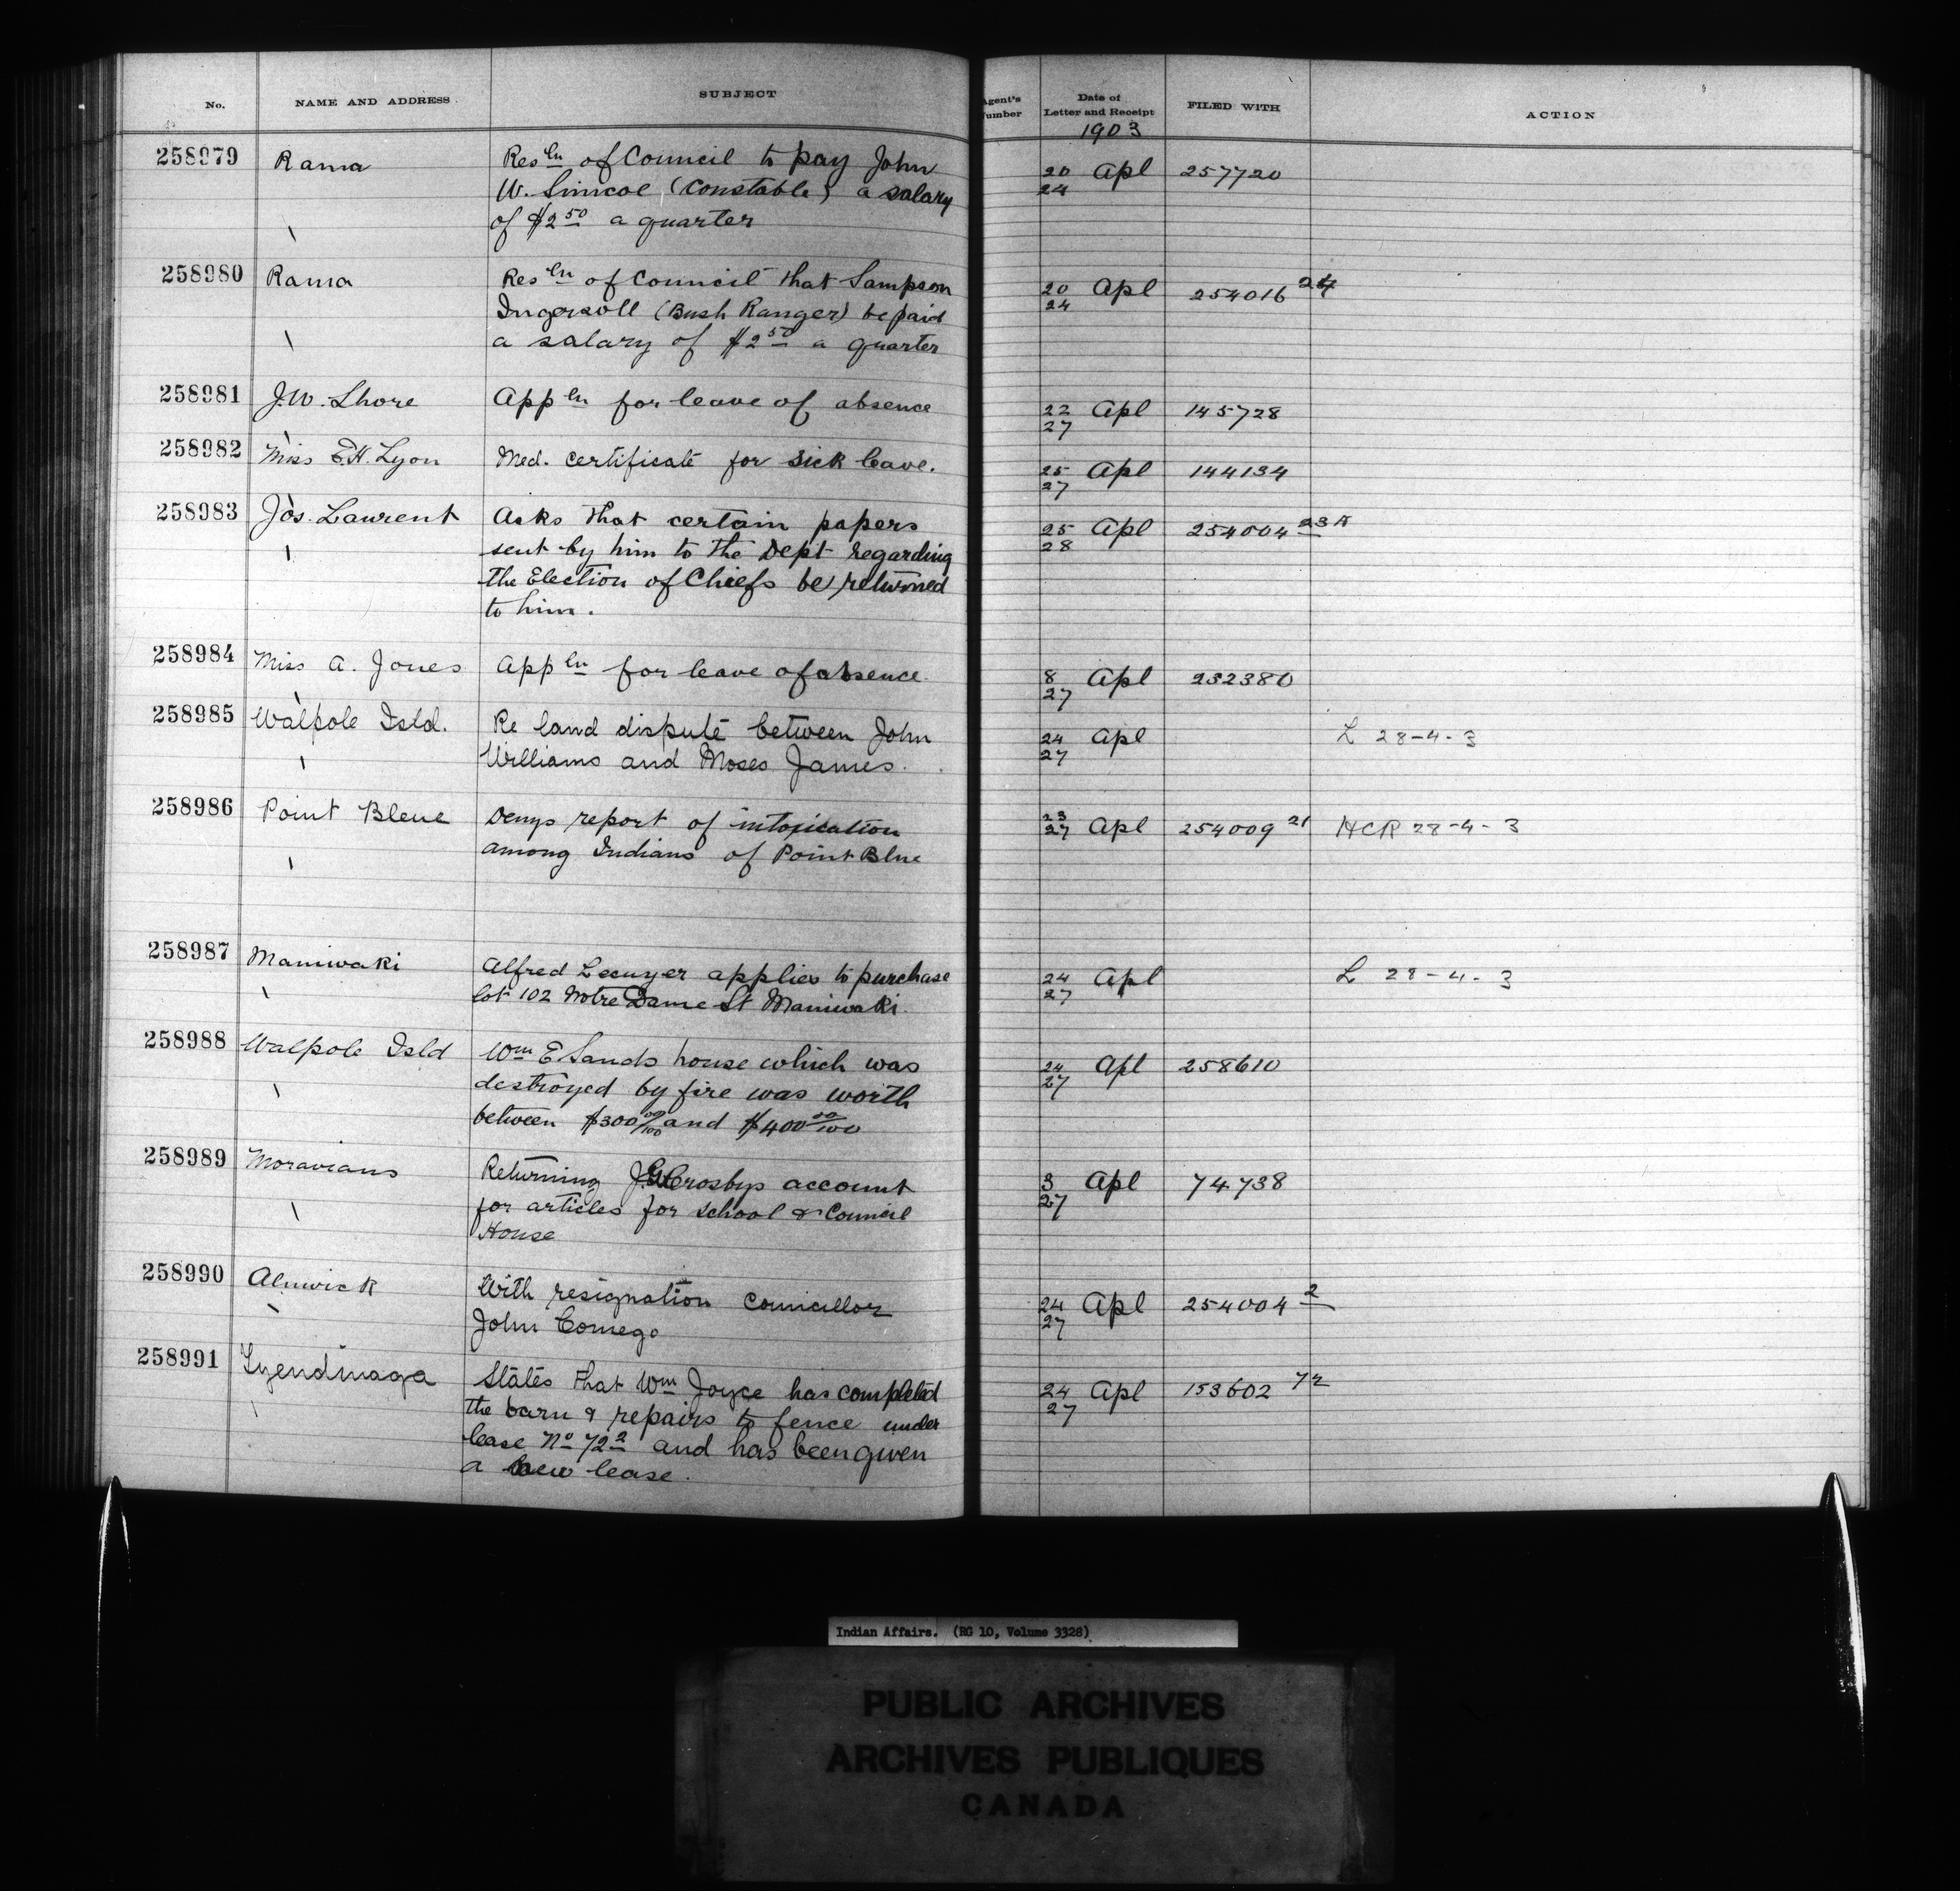 No. NAME AND ADDRESS SUBJECT Agent's Number Date of Letter and Receipt FILED WITH ACTION
1903
258979 Rama Resln of Council to pay John 20/24 Apl 257720
W. Simcoe (Constable) a salary
of $2.50 a quarter
258980 Rama Resln of Council that Sampson 20/24 Apl 254016 24
Ingersoll (Bush Ranger) be paid
a salary of $2.50 a quarter
258981 J.W. Shore Appln for leave of absence 22/27 Apl 145728
258982 Miss E.H. Lyon Med. certificate for sick leave. 25/27 Apl 144134
258983 Jos. Laurent Asks that certain papers 25/28 Apl 254004 23A
sent by him to the Dept regarding
the Election of Chiefs be returned
to him.
258984 Miss A. Jones Appln for leave of absence. 8/27 Apl 232380
258985 Walpole Isld. Re land dispute between John 24/27 Apl L 28-4-3
Williams and Moses James.
258986 Point Bleue Denys report of intoxication 23/27 Apl 254009 21 HCR 28-4-3
among Indians of Point Blue
258987 Maniwaki Alfred Lecuyer applies to purchase 24/27 Apl L 28-4-3
lot 102 Notre Dame St Maniwaki.
258988 Walpole Isld Wm E Sands house which was 24/27 Apl 258610
destroyed by fire was worth
between $300 00/100 and $400 00/100
258989 Moravians Returning J.W. Crosbys account 3/27 Apl 74738
for articles for school & Council
House
258990 Alnwick With resignation Councillor 24/27 Apl 254004 2
John Comego
258991 Tyendinaga States that Wm Joyce has completed 24/27 Apl 153602 72
the barn & repairs to fence under
lease No 72 2 and has been given
a new lease.
Indian Affairs. (RG 10, Volume 3328)
PUBLIC ARCHIVES
ARCHIVES PUBLIQUES
CANADA